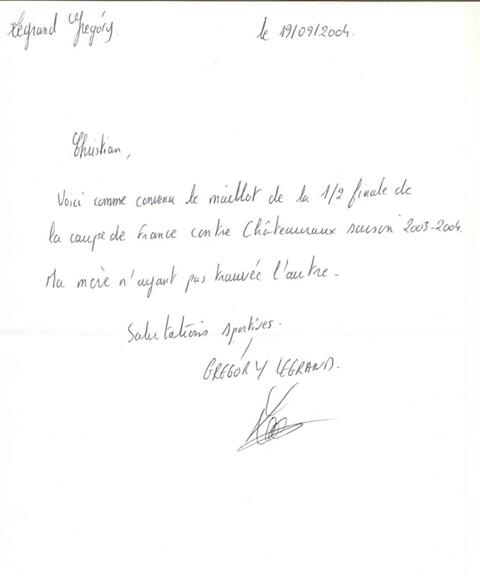 Legrand Grégóry. le 19/09/2004.
Christian,
Voici comme convenu le maillot de la 1/2 finale de
la coupe de France contre Châteauroux saison 2003-2004.
Ma mère n'ayant pas trouvée l'autre.
Salutations sportives.
GRÉGORY LEGRAND.